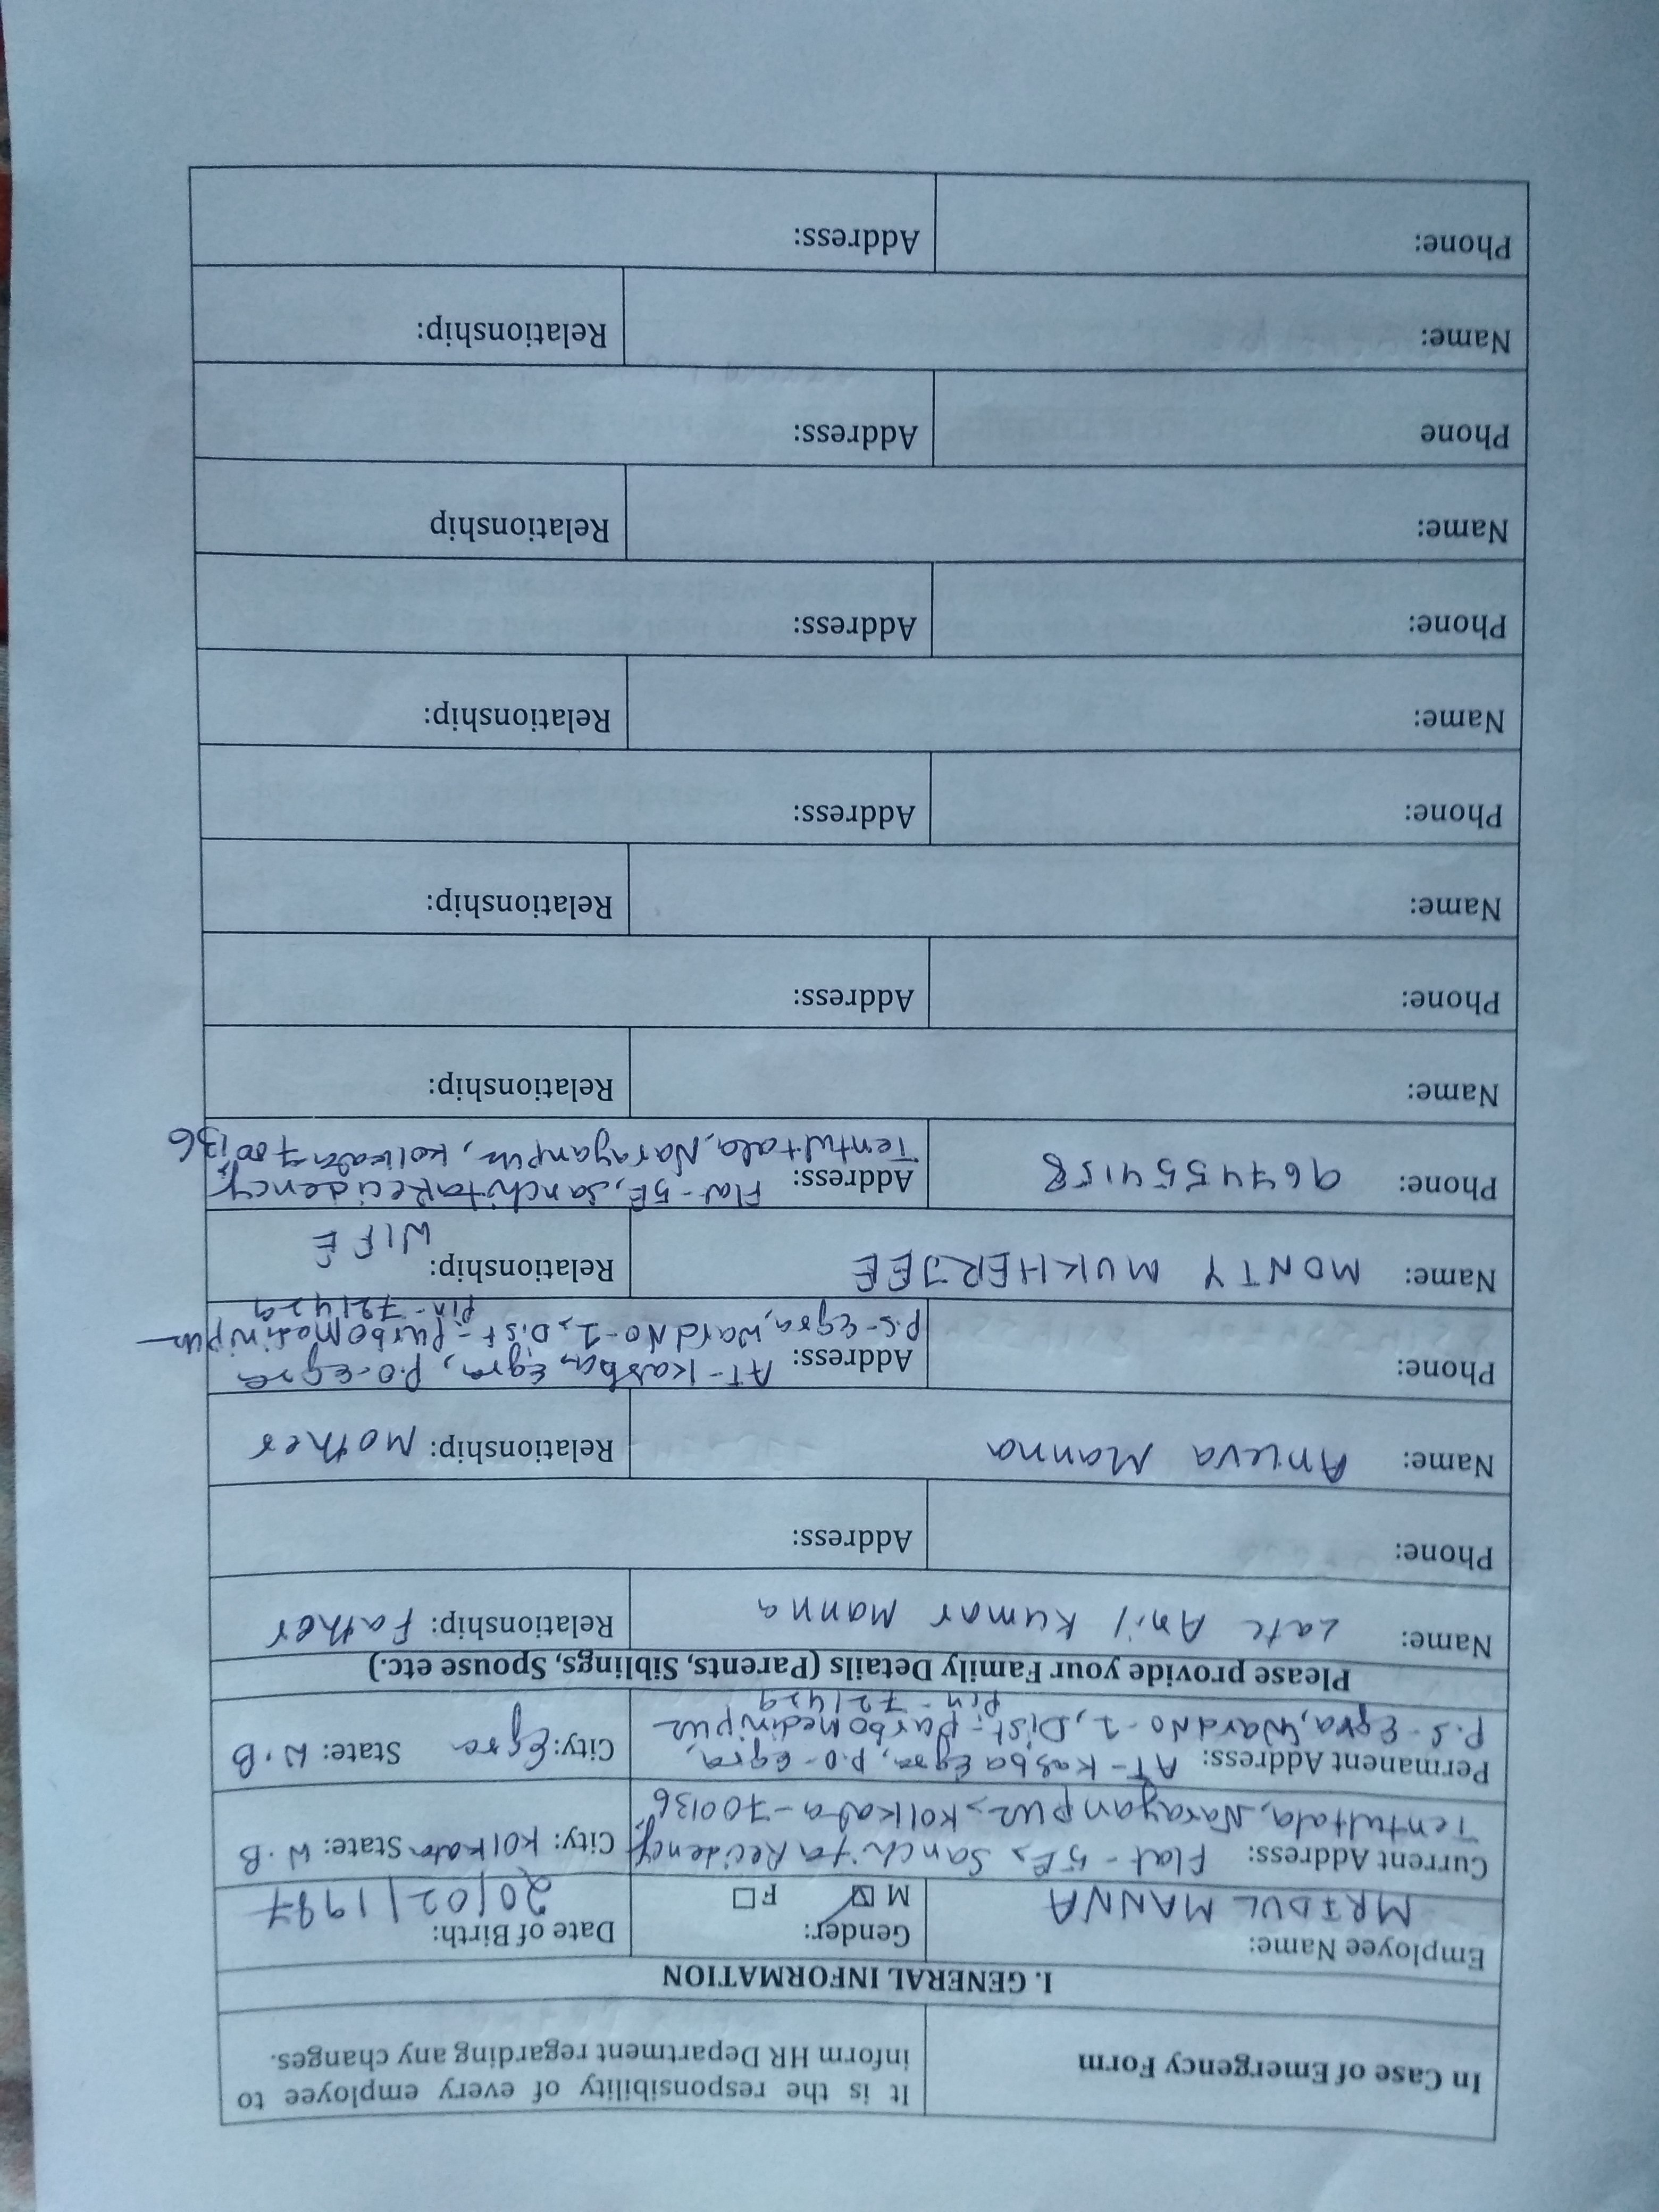 In Case of Emergency Form
It is the responsibility of every employee to
inform HR Department regarding any changes.
I. GENERAL INFORMATION
Employee Name:
MRIDUL MANNA
Gender:
M ☑ F ☐
Date of Birth:
20/02/1987
Current Address: Flat-5E, Sanchita Recidency,
Tentultala, Narayanpur, Kolkata-700136
City: Kolkata State: W.B
Permanent Address: AT-Kasba Egra, P.O-Egra,
P.S-Egra, Ward No-1, Dist-Purbo Medinipur
Pin-721429
City: Egra State: W.B
Please provide your Family Details (Parents, Siblings, Spouse etc.)
Name: Late Anil Kumar Manna
Relationship: Father
Phone:
Address:
Name: Manna
Relationship: Mother
Phone:
Address: AT-Kasba Egra, P.O-Egra
P.S-Egra, Ward No-1, Dist-Purbo Medinipur
Pin-721429
Name: MONTY MUKHERJEE
Relationship: WIFE
Phone: 9674554158
Address: Flat-5E, Sanchita Recidency,
Tentultala, Narayanpur, Kolkata 700136
Name:
Relationship:
Phone:
Address:
Name:
Relationship:
Phone:
Address:
Name:
Relationship:
Phone:
Address:
Name:
Relationship
Phone
Address:
Name:
Relationship:
Phone:
Address: